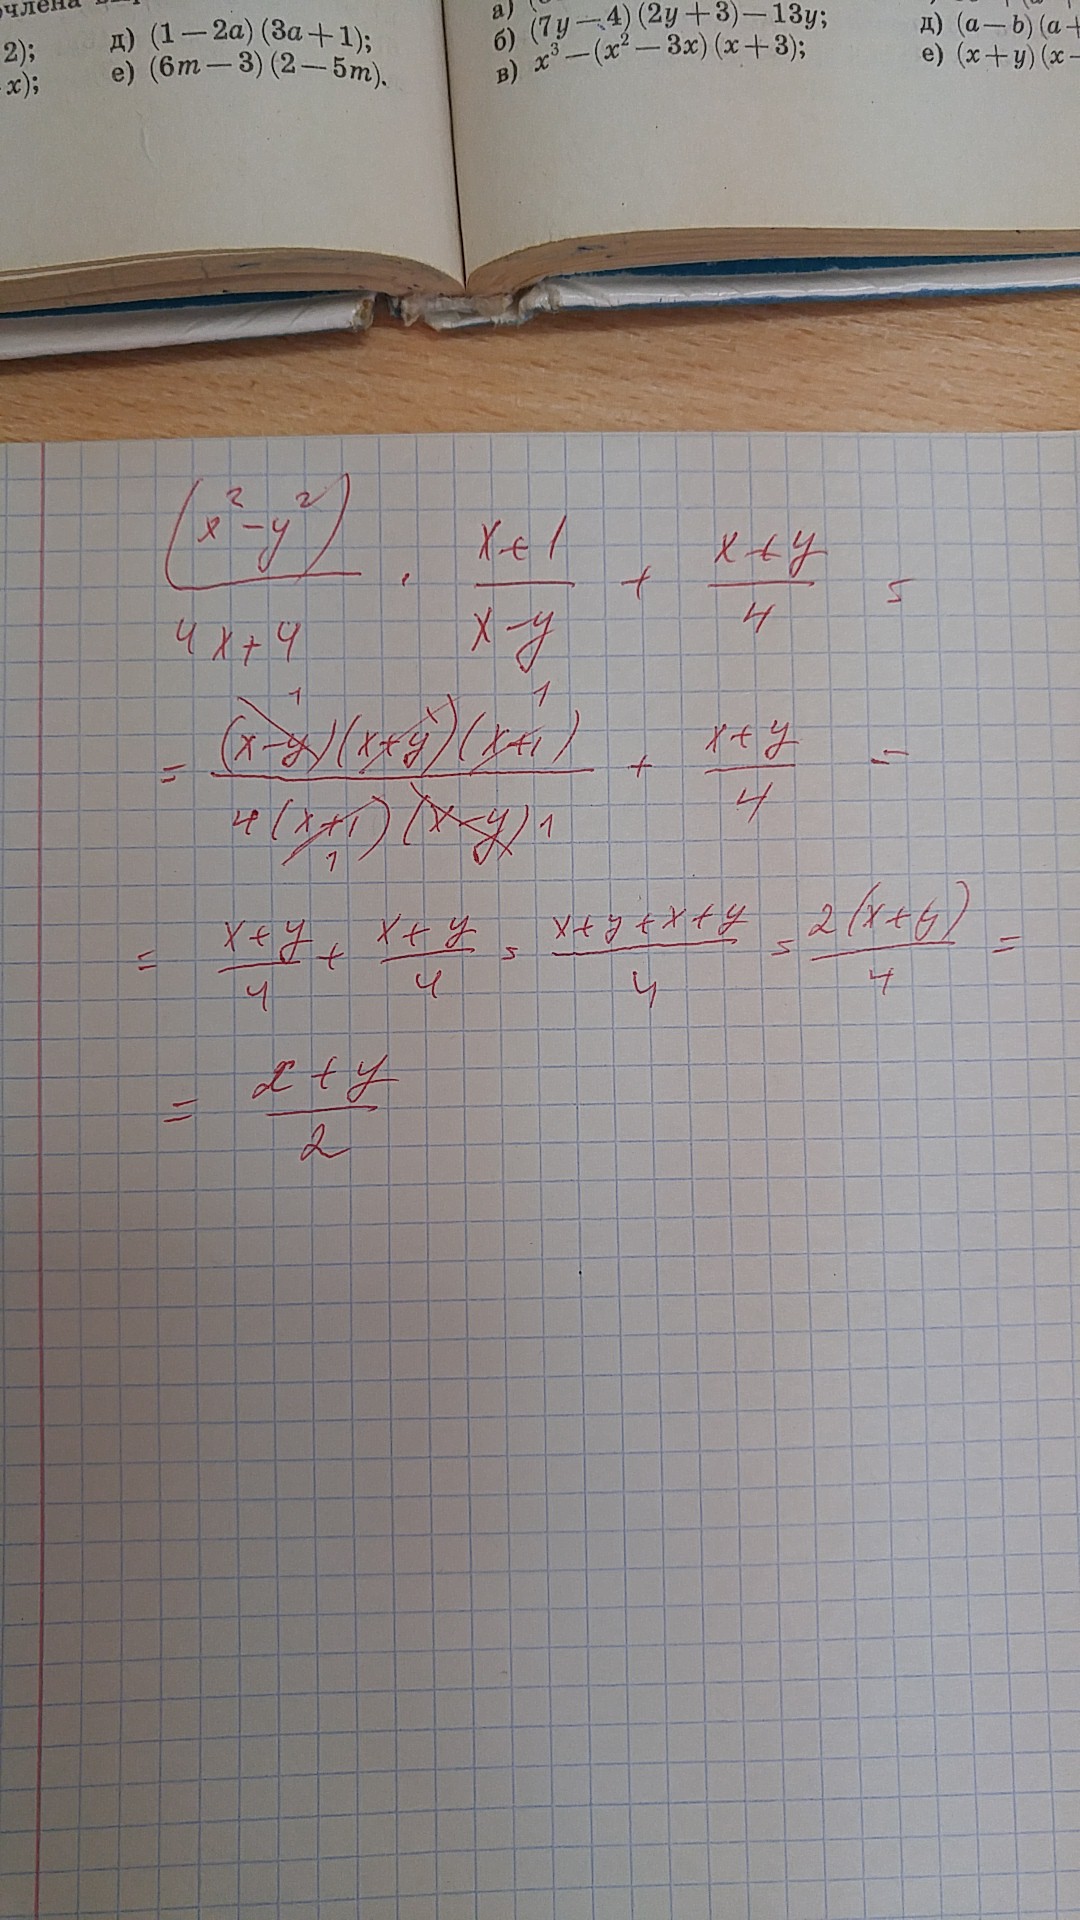 2);
x);
д) (1 − 2a) (3a + 1);
е) (6m − 3) (2 − 5m).
а)
б) (7y − 4) (2y + 3) − 13y;
в) x³ − (x² − 3x) (x + 3);
д) (a − b) (a +
е) (x + y) (x −
(x² − y²) / 4x + 4 · x + 1 / x − y + x + y / 4 =
= (x − y) (x + y) (x + 1) / 4 (x + 1) (x − y) + x + y / 4 =
= x + y / 4 + x + y / 4 = x + y + x + y / 4 = 2 (x + y) / 4 =
= x + y / 2